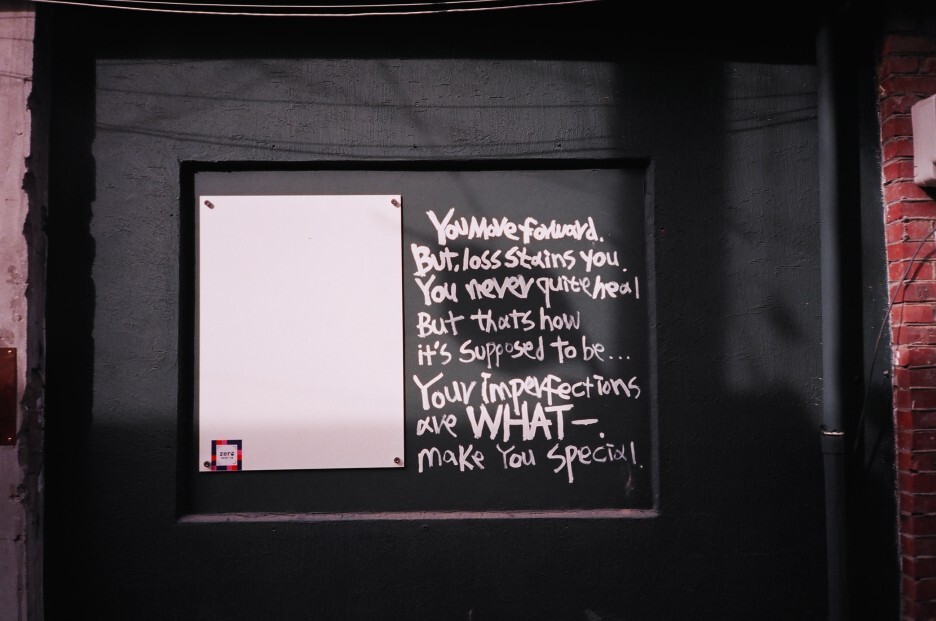 You Move forward.
But, loss stains you.
You never quite heal
But thats how
it's supposed to be...
Your imperfections
are WHAT-.
make You special.
zero